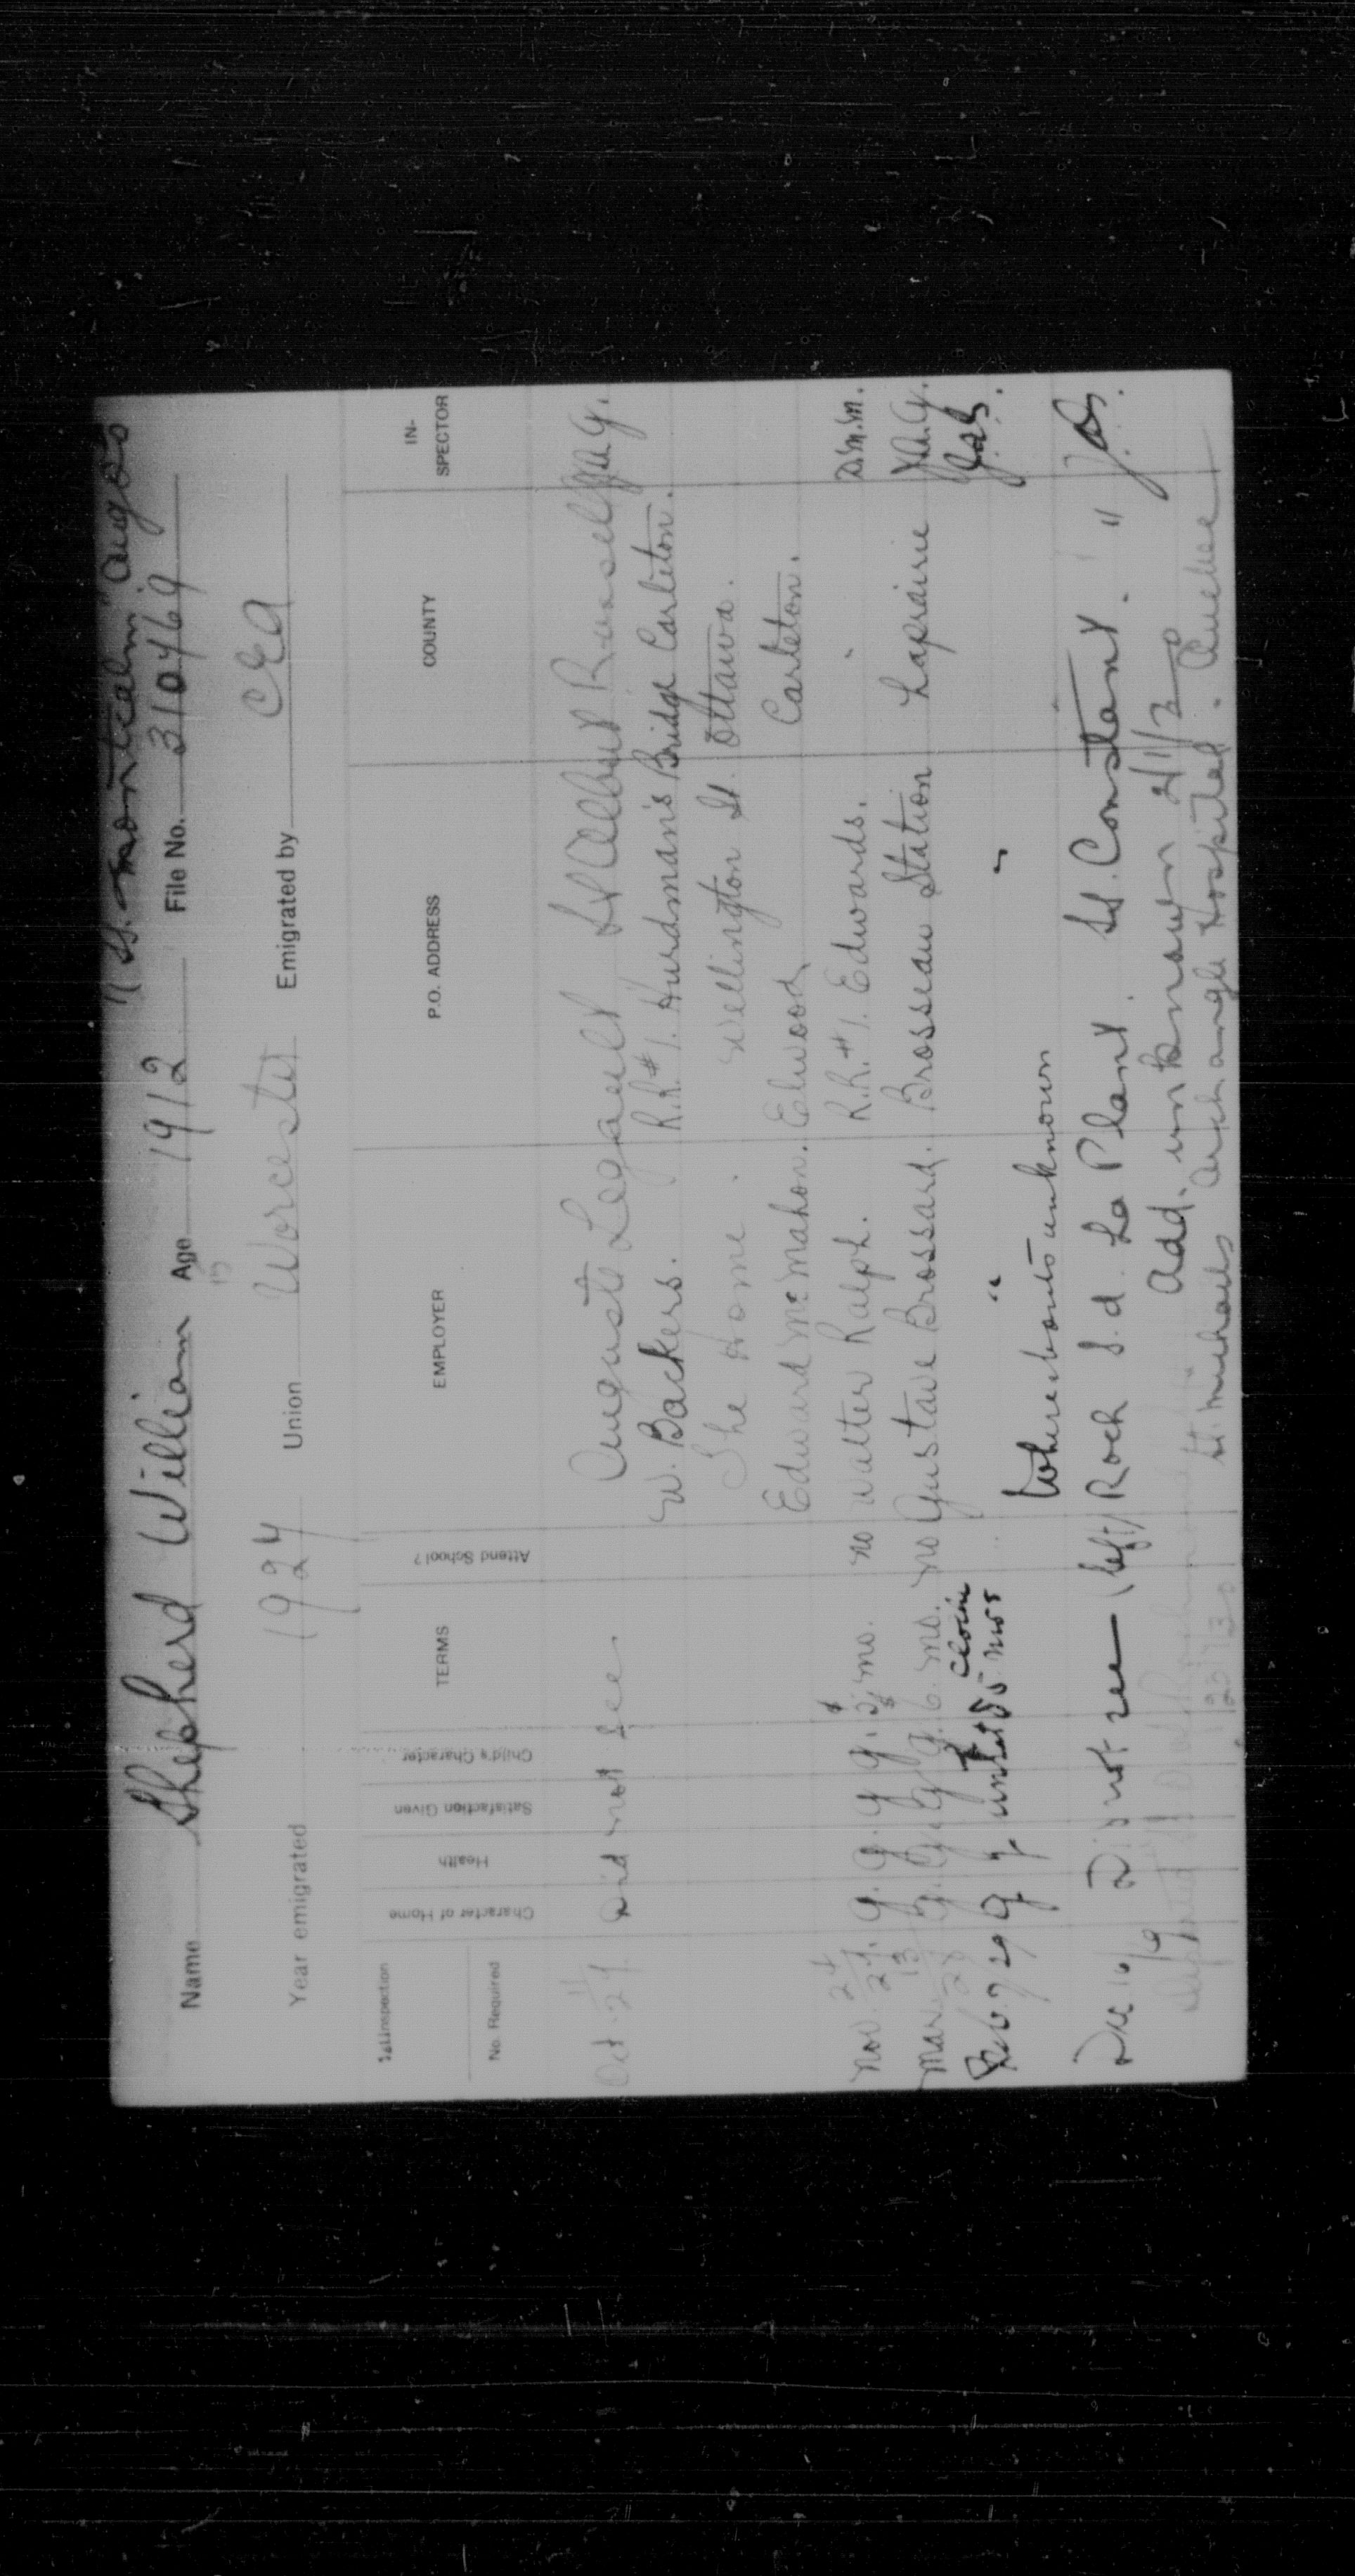 "SS. Montcalm" Aug
Name Shepherd William Age 1912 File No. 310469
15
Year emigrated 1927 Union Worcester Emigrated by CEA
Inspection No. Required Character of Home Health Satisfaction Given Child's Character TERMS Attend School? EMPLOYER P.O. ADDRESS COUNTY IN-SPECTOR
Oct 11/27. Did not see Auguste Legault St Albert Russell
W. Backers. R.R.#1. Hurdman's Bridge Carleton.
The Home. Wellington St. Ottawa.
Edward McMahon. Elwood Carleton.
Nov. 24/27. g. g. g. g. mo. no Walter Ralph. R.R.#1. Edwards. " D.M.M.
Mar. 13/28 g. g. g. g. 6. mo. no Gustave Brossard. Brosseau Station Laprairie
Feb 7 29 g g until now " " "
Whereabouts unknown
Dec 16/9 Did not see (left) Roch S.d. La Plant. St. Constant. "
Add. unknown 21/1/30
St. Michaels Archangle Hospital. Quebec